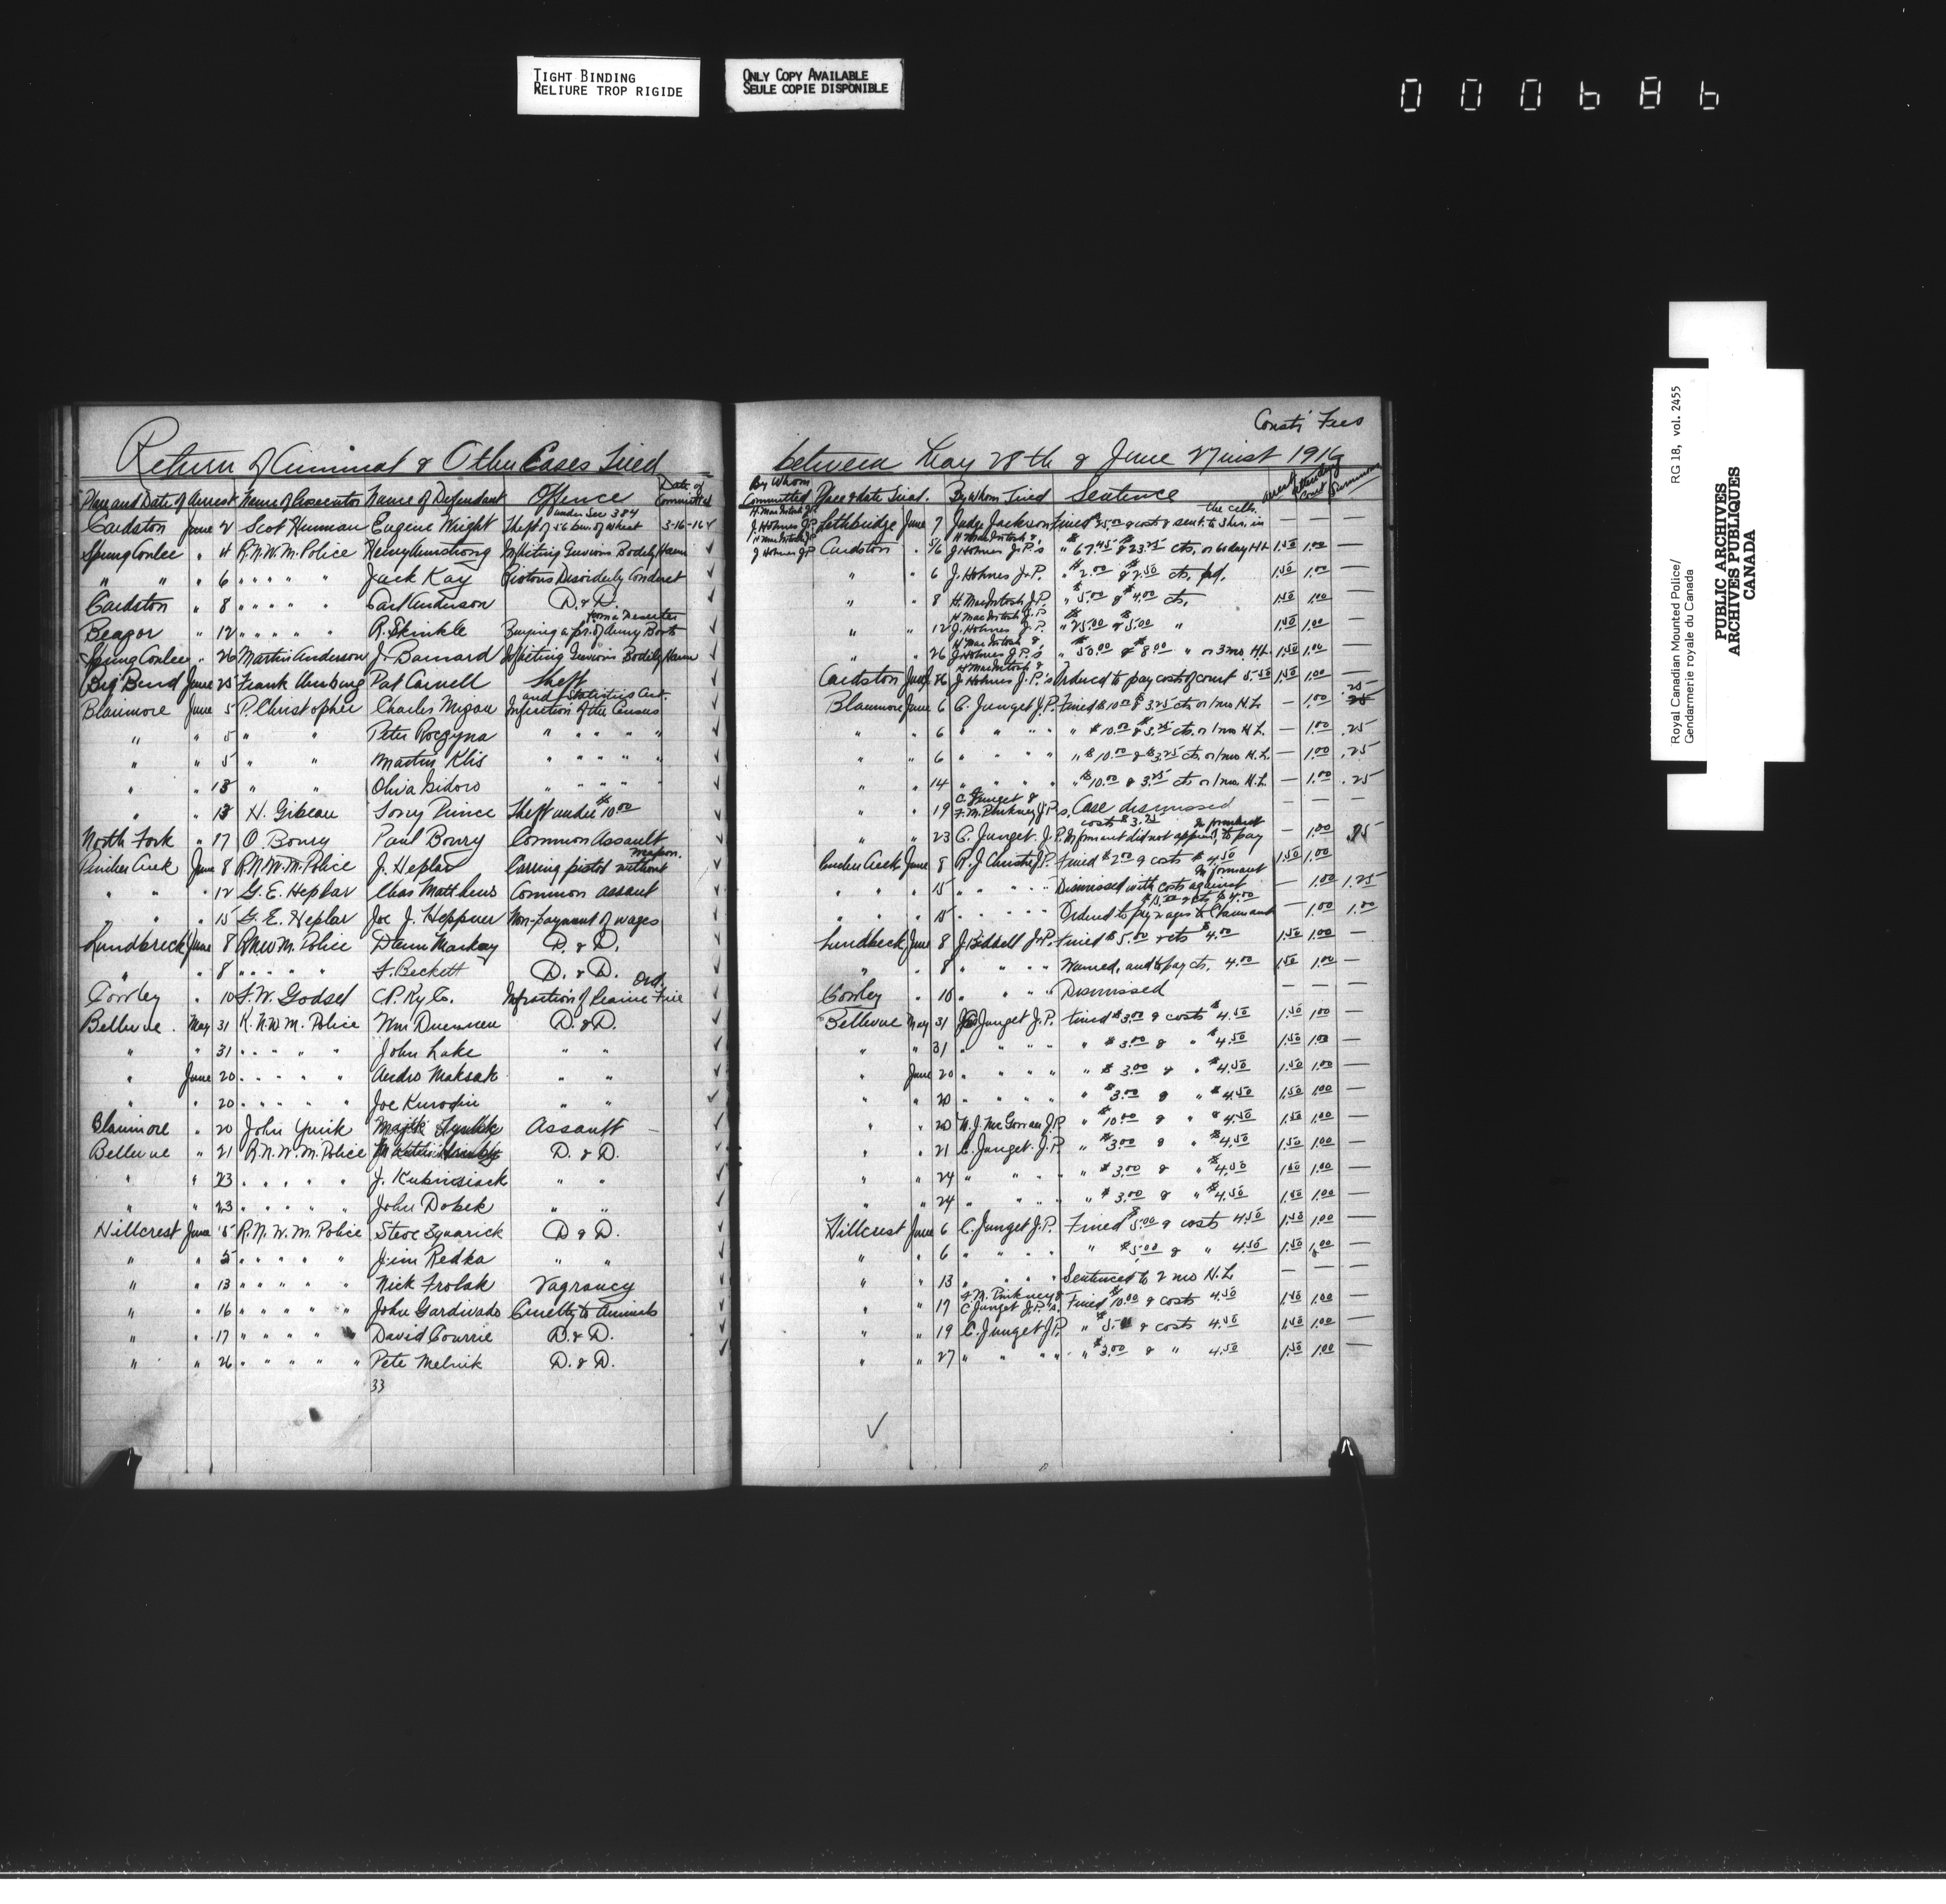 TIGHT BINDING
RELIURE TROP RIGIDE
ONLY COPY AVAILABLE
SEULE COPIE DISPONIBLE
000686
Royal Canadian Mounted Police/ RG 18, vol. 2455
Gendarmerie royale du Canada
PUBLIC ARCHIVES
ARCHIVES PUBLIQUES
CANADA
Const's Fees
Return of Criminal & Other Cases Tried between May 28th & June 27 inst 1916
Place and Date of Arrest Name of Prosecutor Name of Defendant Offence Date of Committal By Whom Committed Place & date Trial. By Whom Tried Sentence Arrest Attending Court Summons
Cardston June 2 Scot Eugene Wright Theft of 56 bus. of wheat under Sec 384 3-16-16 H. MacIntosh JP J Holmes J.P. Lethbridge June 7 Judge Jackson Fined & costs & sent. to 3 hrs. in the cells. — — —
Spring Coulee " 4 R.N.W.M. Police Henry Armstrong Inflicting Grevious Bodily Harm H MacIntosh JP J Holmes J.P. Cardston " 5/6 H MacIntosh & J Holmes J.P.'s " $67.45 & $23.25 cts. or 60 day HL 1.50 1.00 —
" " " 6 " " " " Jack Kay Riotous Disorderly Conduct " " 6 J. Holmes J.P. " $2.00 & $2.50 cts. pd. 1.50 1.00 —
Cardston " 8 " " " " Carl Anderson D. & D. " " 8 H. MacIntosh J.P. " $5.00 & $4.00 cts. 1.50 1.00 —
Beazer " 12 " " " " R. Skinkle Buying a pr. of Army Boots from a Deserter " " 12 H MacIntosh J.P. J. Holmes J.P. " $25.00 & $5.00 " 1.50 1.00 —
Spring Coulee " 26 Martin Anderson J. Barnard Inflicting Grevious Bodily Harm " " 26 H MacIntosh & J Holmes J.P.'s " $50.00 & $8.00 " or 3 mo. H.L. 1.50 1.00 —
Big Bend June 25 Frank Pat Carnell Theft Cardston June 26 H MacIntosh & J. Holmes J.P.'s Ordered to pay cost of court 5.50 1.50 1.00 —
Blairmore June 5 P. Christopher Charles Infraction of the Census and Statistics Act. Blairmore June 6 C. Junget J.P. Fined $10.00 & 3.25 cts or 1 mo H.L. — 1.00 .25
" " 5 " " Peter Roczyna " " " " " " 6 " " " " " $10.00 & $3.25 cts. or 1 mo H.L. — 1.00 .25
" " 5 " " Martin Klis " " " " " " 6 " " " " " $10.00 & $3.25 cts. or 1 mo H.L. — 1.00 .25
" " 13 " " Oliva Isidoro " " " " " " 14 " " " " " $10.00 & 3.25 cts or 1 mo. H.L. — 1.00 .25
" " 13 H. Gibeau Tony Prince Theft under $10.00 " " 19 C. Junget & F. M. Pinkney J.P's. Case dismissed — — —
North Fork " 17 O. Boury Paul Boury Common Assault " " 23 C. Junget. J.P. Informant did not appear, Informant to pay costs $3.25 — 1.00 .25
Pincher Creek June 8 R.N.W.M. Police J. Heplar Carring pistol without weapon. Pincher Creek June 8 R. J. Christie J.P. Fined $2.00 & costs $4.50 1.50 1.00
" " " 12 G. E. Heplar Chas Matthews Common assault " " " 15 " " " " Dismissed with costs against Informant — 1.00 1.25
" " 15 G. E. Heplar Joe J. Heppner Non-payment of wages " " " 15 " " " " Ordered to pay wages to Claimant & cts $4.00 — 1.00 1.00
Lundbreck June 8 RNWM. Police Mackay D. & D. Lundbreck June 8 J. Biddell J.P. Fined $5.00 & cts $4.00 1.50 1.00 —
" " 8 " " " " F. Beckett D. & D. " " 8 " " " " Warned, and to pay cts. 4.00 1.50 1.00 —
Cowley " 10 F. W. Godsel C.P. Ry Co. Infraction of Prairie Fire Ord. Cowley " 10 " " " " Dismissed — — —
Bellevue. May 31 R.N.W.M. Police Wm D. & D. Bellevue May 31 C. Junget J.P. Fined $3.00 & costs $4.50 1.50 1.00 —
" " 31 " " " " John Lake " " " " 31 " " " " " $3.00 & " $4.50 1.50 1.00 —
" June 20 " " " " Andro Maksak " " " June 20 " " " " " $3.00 & " $4.50 1.50 1.00 —
" " 20 " " " " Joe Kurodin " " " " 20 " " " " " $3.00 & " $4.50 1.50 1.00 —
Blairmore " 20 John Assault " " 20 W.J. McGowan J.P. " $10.00 & " $4.50 1.50 1.00 —
Bellevue " 21 R.N.W.M. Police D. & D. " " 21 C. Junget. J.P. " $3.00 & " $4.50 1.50 1.00 —
" " 23 " " " " J. Kubinsiack " " " " 24 " " " " " $3.00 & " $4.50 1.50 1.00 —
" " 23 " " " " John Dobek " " " " 24 " " " " " $3.00 & " $4.50 1.50 1.00 —
Hillcrest June 5 R.N.W.M. Police Steve Squarick D & D. Hillcrest June 6 C. Junget J.P. Fined $5.00 & costs 4.50 1.50 1.00 —
" " 5 " " " " Jim Redka " " " " 6 " " " " " $5.00 & " 4.50 1.50 1.00 —
" " 13 " " " " Nick Frolak Vagrancy " " 13 " " " " Sentenced to 2 mo H.L — — —
" " 16 " " " " John Gardivado Cruelty to Animals " " 17 F. M. Pinkney & C Junget J.P.'s. Fined $10.00 & costs 4.50 1.50 1.00 —
" " 17 " " " " David Courrie D. & D. " " 19 C. Junget J.P. " $5.00 & costs 4.50 1.50 1.00 —
" " 26 " " " " Pete Melnik D. & D. " " 27 " " " " " $3.00 & " 4.50 1.50 1.00 —
33